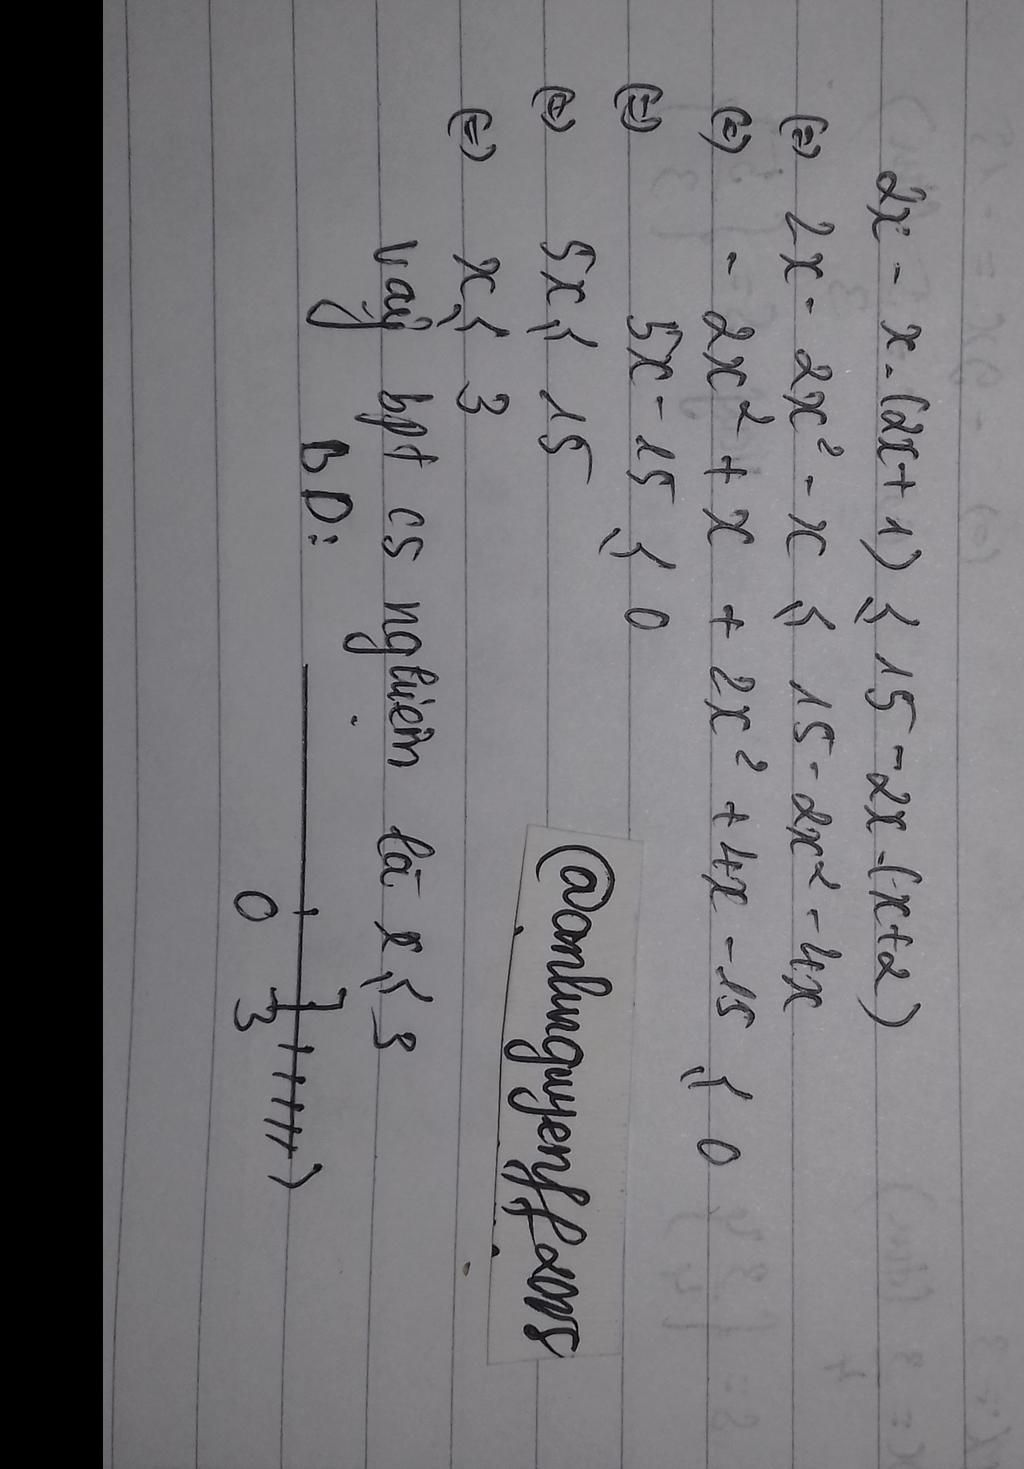 2x - x.(2x+1) ≤ 15 - 2x.(x+2)
(=) 2x - 2x² - x ≤ 15 - 2x² - 4x
(=) - 2x² + x + 2x² + 4x - 15 ≤ 0
(=) 5x - 15 ≤ 0
(=) 5x ≤ 15
(=) x ≤ 3
Vậy bpt có nghiệm là x ≤ 3
BD:
0 3